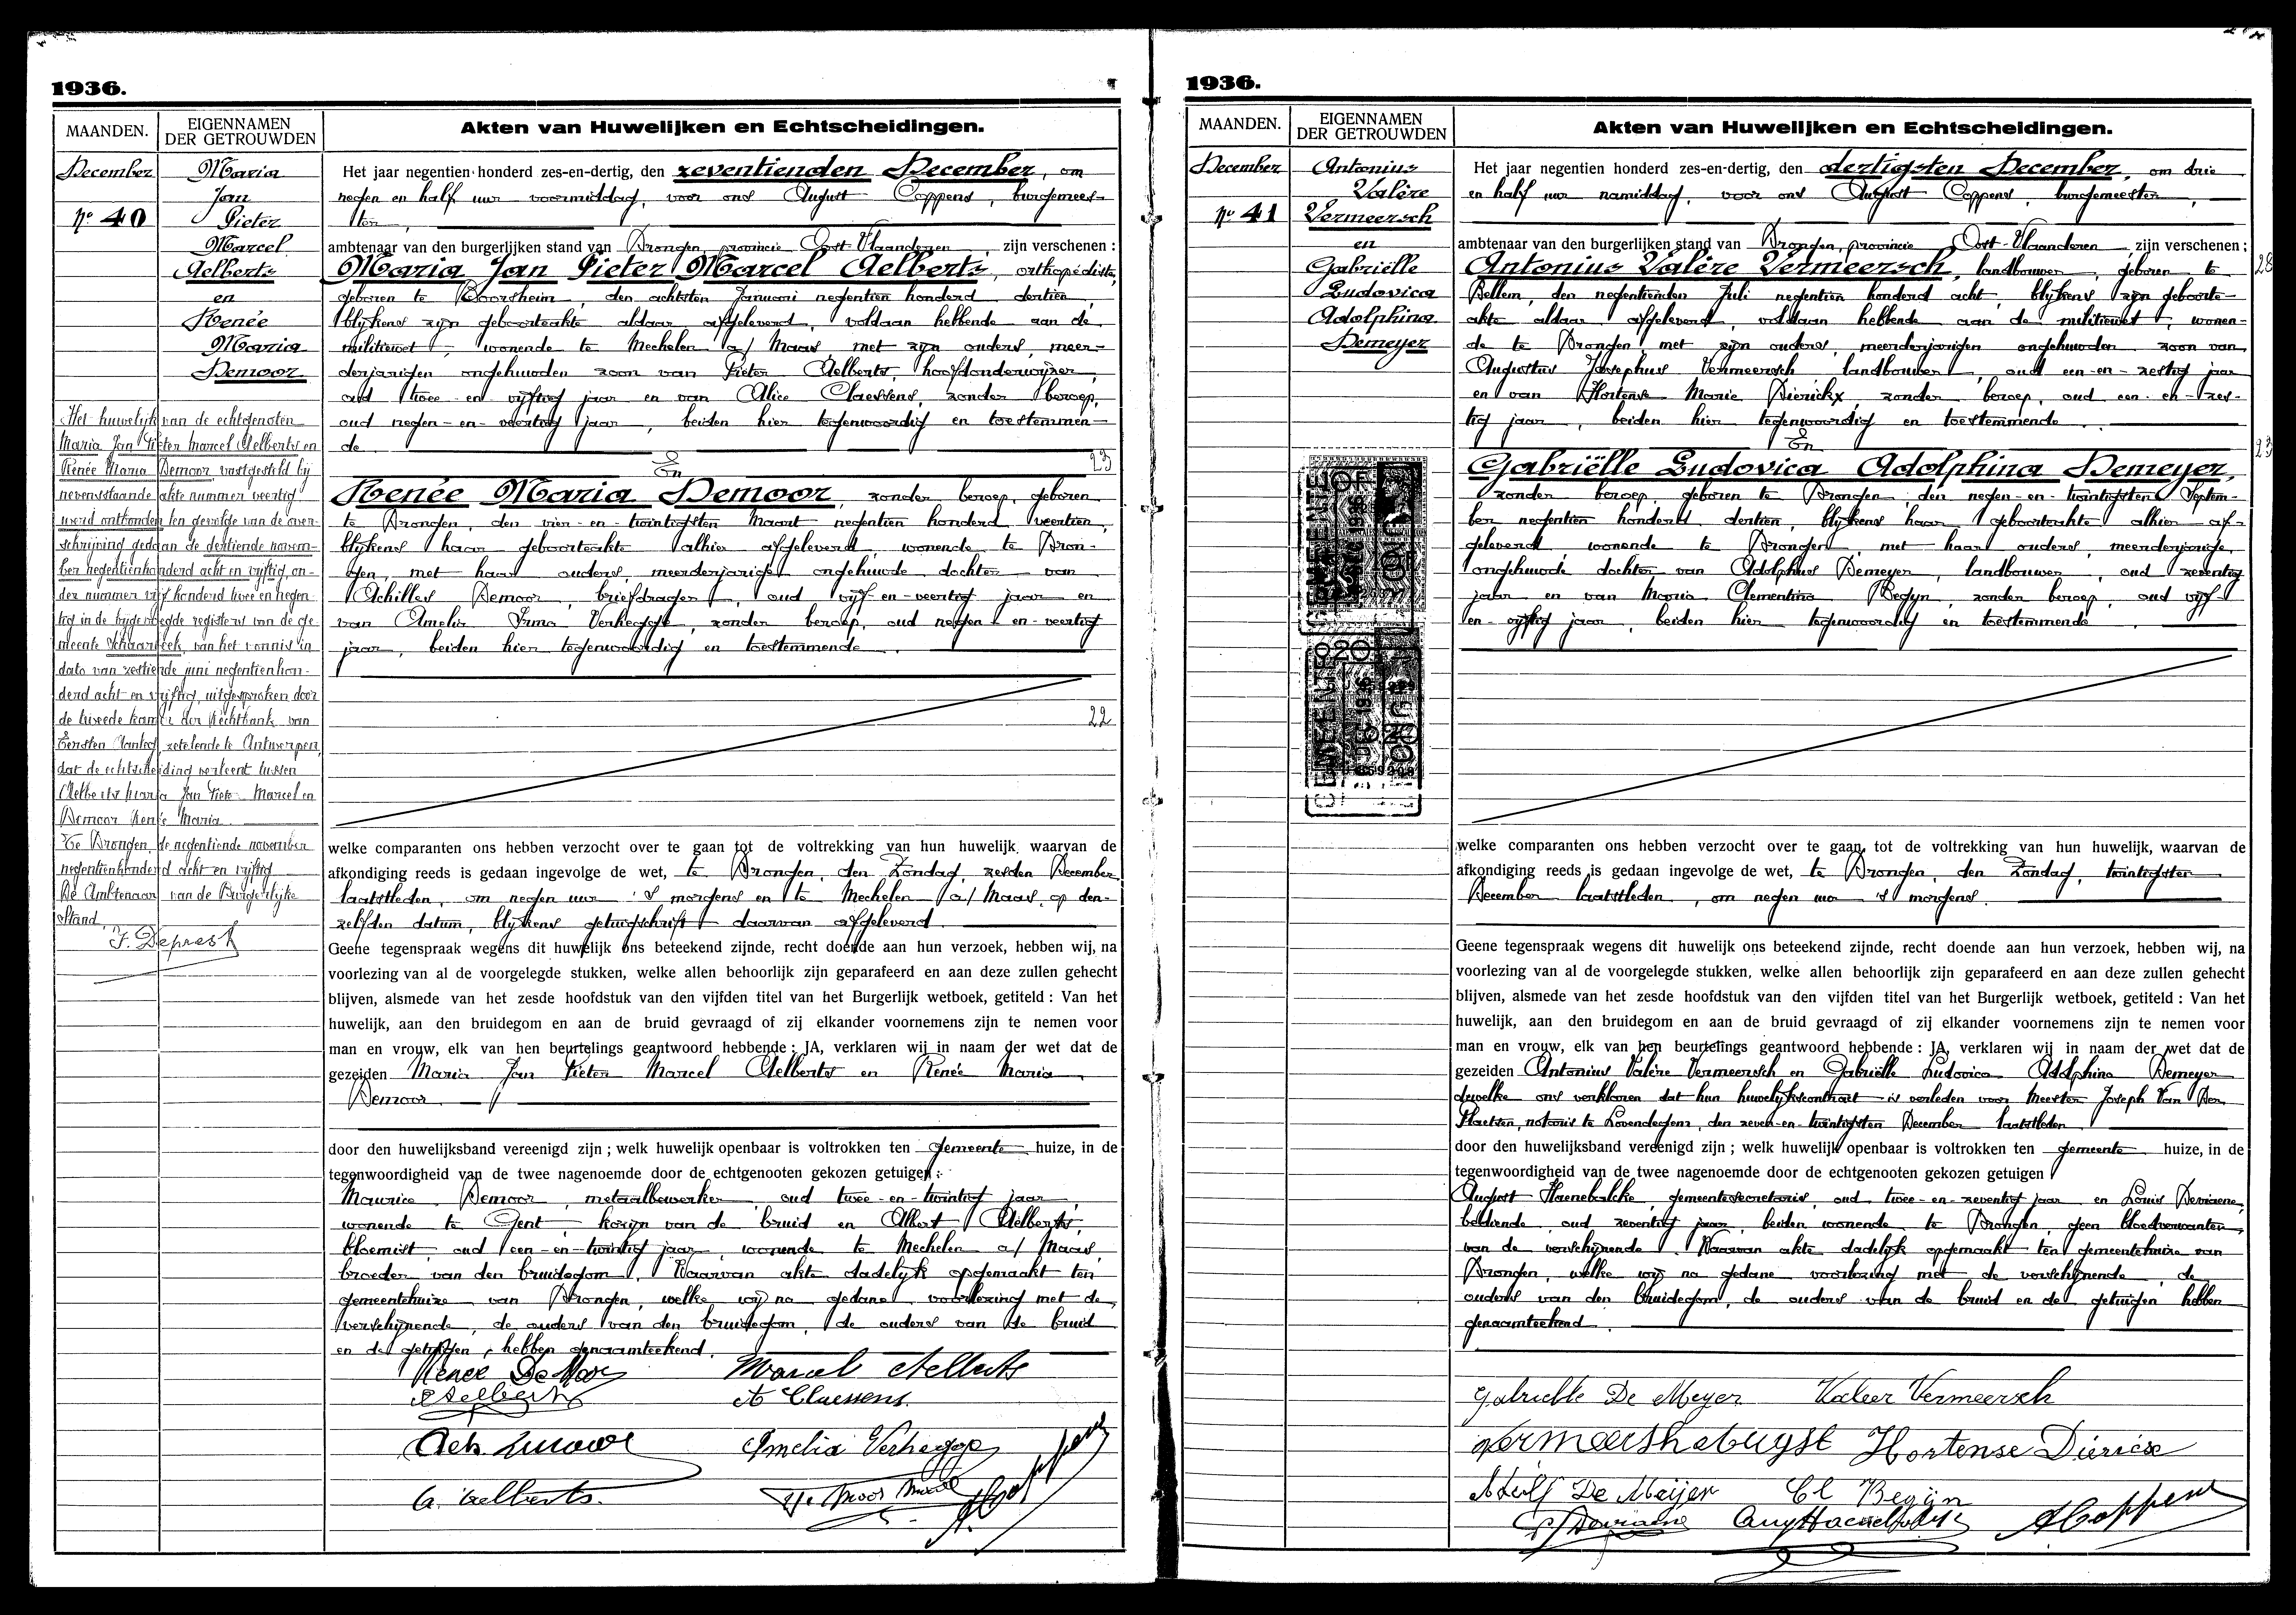 1936.
MAANDEN.
EIGENNAMEN
DER GETROUWDEN
Akten van Huwelijken en Echtscheidingen.
December
Nº 40
Maria
Jan
Pieter
Marcel
Aelberts
en
Renée
Maria
Demoor
Het huwelijk van de echtgenoten
Maria Jan Pieter Marcel Aelberts en
Renée Maria Demoor vastgesteld bij
nevensstaande akte nummer veertig
werd ontbonden ten gevolge van de over-
schrijving gedaan de dertiende novem-
ber negentienhonderd acht en vijftig on-
der nummer vijf honderd twee en negen-
tig in de bijgevoegde registers van de ge-
meente Schaarbeek, van het vonnis in
dato van zestiende juni negentienhon-
derd acht en vijftig, uitgesproken door
de tweede kamer der Rechtbank van
Eersten Aanleg, zetelende te Antwerpen,
dat de echtscheiding verleent tussen
Aelberts Maria Jan Pieter Marcel en
Demoor Renée Maria.
Te Drongen, de negentiende november
negentienhonderd acht en vijftig
De Ambtenaar van de Burgerlijke
Stand,
F. Deprest
Het jaar negentien honderd zes-en-dertig, den zeventienden December, om
negen en half uur voormiddag, voor ons August Coppens, burgemees-
ter,
ambtenaar van den burgerlijken stand van Drongen, provincie Oost-Vlaanderen, zijn verschenen :
Maria Jan Pieter Marcel Aelberts, orthopédiste,
geboren te Boorsheim, den achtsten Januari negentien honderd dertien,
blijkens zijn geboorteakte aldaar afgeleverd, voldaan hebbende aan de
militiewet, wonende te Mechelen a/ Maas met zijn ouders, meer-
derjarigen ongehuwden zoon van Pieter Aelberts, hoofdonderwijzer,
oud twee-en-vijftig jaar en van Alice Claessens, zonder beroep,
oud negen-en-veertig jaar, beiden hier tegenwoordig en toestemmen-
de
En
23
Renée Maria Demoor, zonder beroep, geboren
te Drongen, den vier-en-twintigsten Maart negentien honderd veertien,
blijkens haar geboorteakte alhier afgeleverd, wonende te Dron-
gen, met haar ouders, meerderjarige ongehuwde dochter van
Achilles Demoor, briefdrager, oud vijf-en-veertig jaar en
van Amelia Irma Verhegge, zonder beroep, oud negen-en-veertig
jaar, beiden hier tegenwoordig en toestemmende.
22
welke comparanten ons hebben verzocht over te gaan tot de voltrekking van hun huwelijk, waarvan de
afkondiging reeds is gedaan ingevolge de wet, te Drongen, den Zondag, zesden December
laatstleden, om negen uur 's morgens en te Mechelen a/ Maas, op den-
zelfden datum, blijkens getuigschrift daarvan afgeleverd.
Geene tegenspraak wegens dit huwelijk ons beteekend zijnde, recht doende aan hun verzoek, hebben wij, na
voorlezing van al de voorgelegde stukken, welke allen behoorlijk zijn geparafeerd en aan deze zullen gehecht
blijven, alsmede van het zesde hoofdstuk van den vijfden titel van het Burgerlijk wetboek, getiteld : Van het
huwelijk, aan den bruidegom en aan de bruid gevraagd of zij elkander voornemens zijn te nemen voor
man en vrouw, elk van hen beurtelings geantwoord hebbende : JA, verklaren wij in naam der wet dat de
gezeiden Maria Jan Pieter Marcel Aelberts en Renée Maria
Demoor
door den huwelijksband vereenigd zijn ; welk huwelijk openbaar is voltrokken ten gemeente huize, in de
tegenwoordigheid van de twee nagenoemde door de echtgenooten gekozen getuigen :
Maurice Demoor, metaalbewerker, oud twee-en-twintig jaar,
wonende te Gent, kozijn van de bruid en Albert Aelberts,
bloemist, oud een-en-twintig jaar, wonende te Mechelen a/ Maas,
broeder van den bruidegom. Waarvan akte dadelijk opgemaakt ten
gemeentehuize van Drongen, welke wij na gedane voorlezing met de
verschijnende, de ouders van den bruidegom, de ouders van de bruid
en de getuigen, hebben genaamteekend.
Renee De Moor Marcel Aelberts
P Aelberts A Claessens.
Ach. Demoor Amelia Verhegge
A. Aelberts. De Moor Maur A Coppens
1936.
MAANDEN.
EIGENNAMEN
DER GETROUWDEN
Akten van Huwelijken en Echtscheidingen.
December
Nº 41
Antonius
Valère
Vermeersch
en
Gabriëlle
Ludovica
Adolphina
Demeyer
Het jaar negentien honderd zes-en-dertig, den dertigsten December, om drie
en half uur namiddag, voor ons August Coppens, burgemeester,
ambtenaar van den burgerlijken stand van Drongen, provincie Oost-Vlaanderen, zijn verschenen ;
Antonius Valère Vermeersch, landbouwer, geboren te
28
Bellem, den negentienden Juli negentien honderd acht, blijkens zijn geboorte-
akte aldaar afgeleverd, voldaan hebbende aan de militiewet, wonen-
de te Drongen, met zijn ouders, meerderjarigen ongehuwden zoon van
Augustus Josephus Vermeersch landbouwer, oud een-en-zestig jaar
en van Hortense Marie Dierickx, zonder beroep, oud een-en-zes-
tig jaar, beiden hier tegenwoordig en toestemmende.
En
23
Gabriëlle Ludovica Adolphina Demeyer,
zonder beroep, geboren te Drongen, den negen-en-twintigsten Septem-
ber negentien honderd dertien, blijkens haar geboorteakte alhier af-
geleverd, wonende te Drongen, met haar ouders, meerderjarige,
ongehuwde dochter van Adolphus Demeyer, landbouwer, oud zeventig
jaar en van Maria Clementina Begyn, zonder beroep, oud vijf-
en-vijftig jaar, beiden hier tegenwoordig en toestemmende.
welke comparanten ons hebben verzocht over te gaan tot de voltrekking van hun huwelijk, waarvan de
afkondiging reeds is gedaan ingevolge de wet, te Drongen, den Zondag, twintigsten
December laatstleden, om negen uur 's morgens.
Geene tegenspraak wegens dit huwelijk ons beteekend zijnde, recht doende aan hun verzoek, hebben wij, na
voorlezing van al de voorgelegde stukken, welke allen behoorlijk zijn geparafeerd en aan deze zullen gehecht
blijven, alsmede van het zesde hoofdstuk van den vijfden titel van het Burgerlijk wetboek, getiteld : Van het
huwelijk, aan den bruidegom en aan de bruid gevraagd of zij elkander voornemens zijn te nemen voor
man en vrouw, elk van hen beurtelings geantwoord hebbende : JA, verklaren wij in naam der wet dat de
gezeiden Antonius Valère Vermeersch en Gabriëlle Ludovica Adolphina Demeyer
dewelke ons verklaren dat hun huwelijkscontract is verleden voor Meester Joseph Van Der
Plaetsen, notaris te Lovendegem, den zeven-en-twintigsten December laatstleden
door den huwelijksband vereenigd zijn ; welk huwelijk openbaar is voltrokken ten gemeente huize, in de
tegenwoordigheid van de twee nagenoemde door de echtgenooten gekozen getuigen
August Haenebalcke, gemeentesecretaris, oud twee-en-zeventig jaar en Louis Deviaene,
bediende, oud zeventig jaar, beiden wonende te Drongen, geen bloedverwanten
van de verschijnende. Waarvan akte dadelijk opgemaakt ten gemeentehuize van
Drongen, welke wij na gedane voorlezing met de verschijnende, de
ouders van den bruidegom, de ouders van de bruid en de getuigen hebben
genaamteekend.
Gabrielle De Meyer Valeer Vermeersch
Hortense Dierickx
Adolf De Meijer Cl Begijn
Deviaene Aug Haenebalcke A Coppens